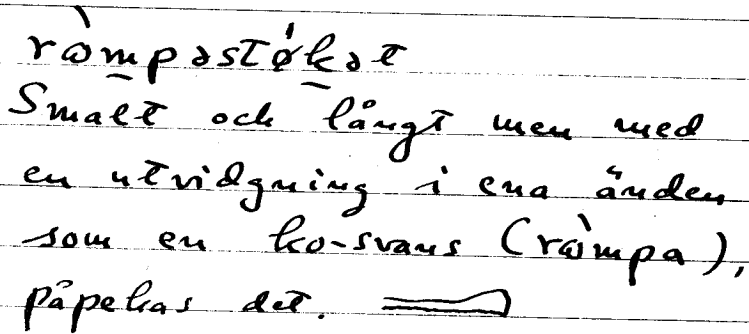 ròmpəstǿkət
Smalt och långt men med
en utvidgning i ena änden
som en ko-svans (ròmpa),
påpekas det.